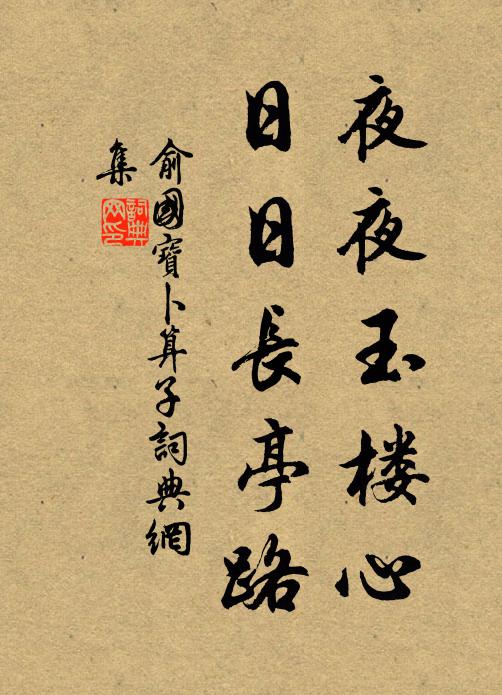 夜夜玉楼心
日日長亭路
俞國寶卜算子詞典網
集
詞典网印